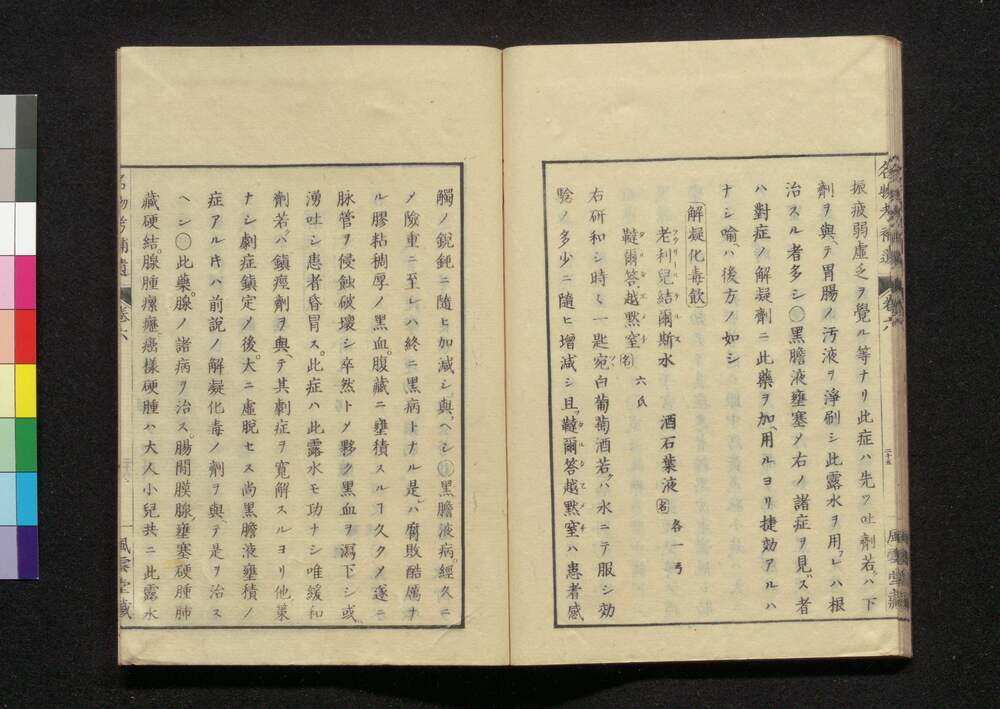 振疲弱虛乏ヲ覺ル等ナリ此症ハ先ツ吐劑若クハ下
劑ヲ與ヘテ胃腸ノ汚液ヲ淨刷シ此露水ヲ用フレハ根
治スル者多シ〇黑膽液壅塞メ右ノ諸症ヲ見ハス者
ハ對症ノ解凝劑ニ此藥ヲ加ヘ用ルヨリ捷効アルハ
ナシ喻ヘハ後方ノ如シ
解凝化毒飲
老利兒結爾斯水 酒石葉液名 各一弓
韃爾答越黙窒名 六氏
右研和シ時々一匙宛白葡萄酒若クハ水ニテ服シ効
驗ノ多少ニ隨ヒ増減シ且ツ韃爾答越黙窒ハ患者感
觸ノ鋭鈍ニ隨ヒ加減シ與フヘシ〇黑膽液病經久ニ
メ險重ニ至レハ終ニ黑病トナル是レハ腐敗酷厲ナ
ル膠粘稠厚ノ黑血腹藏ニ壅積スルヿ久クメ遂ニ
脉管ヲ侵蝕破壞シ卒然トメ夥ク黑血ヲ瀉下シ或ハ
湧吐シ患者昏冒ス此症ハ此露水モ功ナシ唯緩和
劑若クハ鎮痙劑ヲ與ヘテ其劇症ヲ寬解スルヨリ他策
ナシ劇症鎮定ノ後大ニ虛脫セス尚黑膽液壅積ノ
症アル𪜈ハ前說ノ解凝化毒ノ劑ヲ與ヘテ是ヲ治ス
ヘシ〇此藥腺ノ諸病ヲ治ス腸間膜腺壅塞硬腫肺
藏硬結腺腫瘰癧癌樣硬腫ハ大人小兒共ニ此露水
名物考補遺 卷六
風雲堂藏